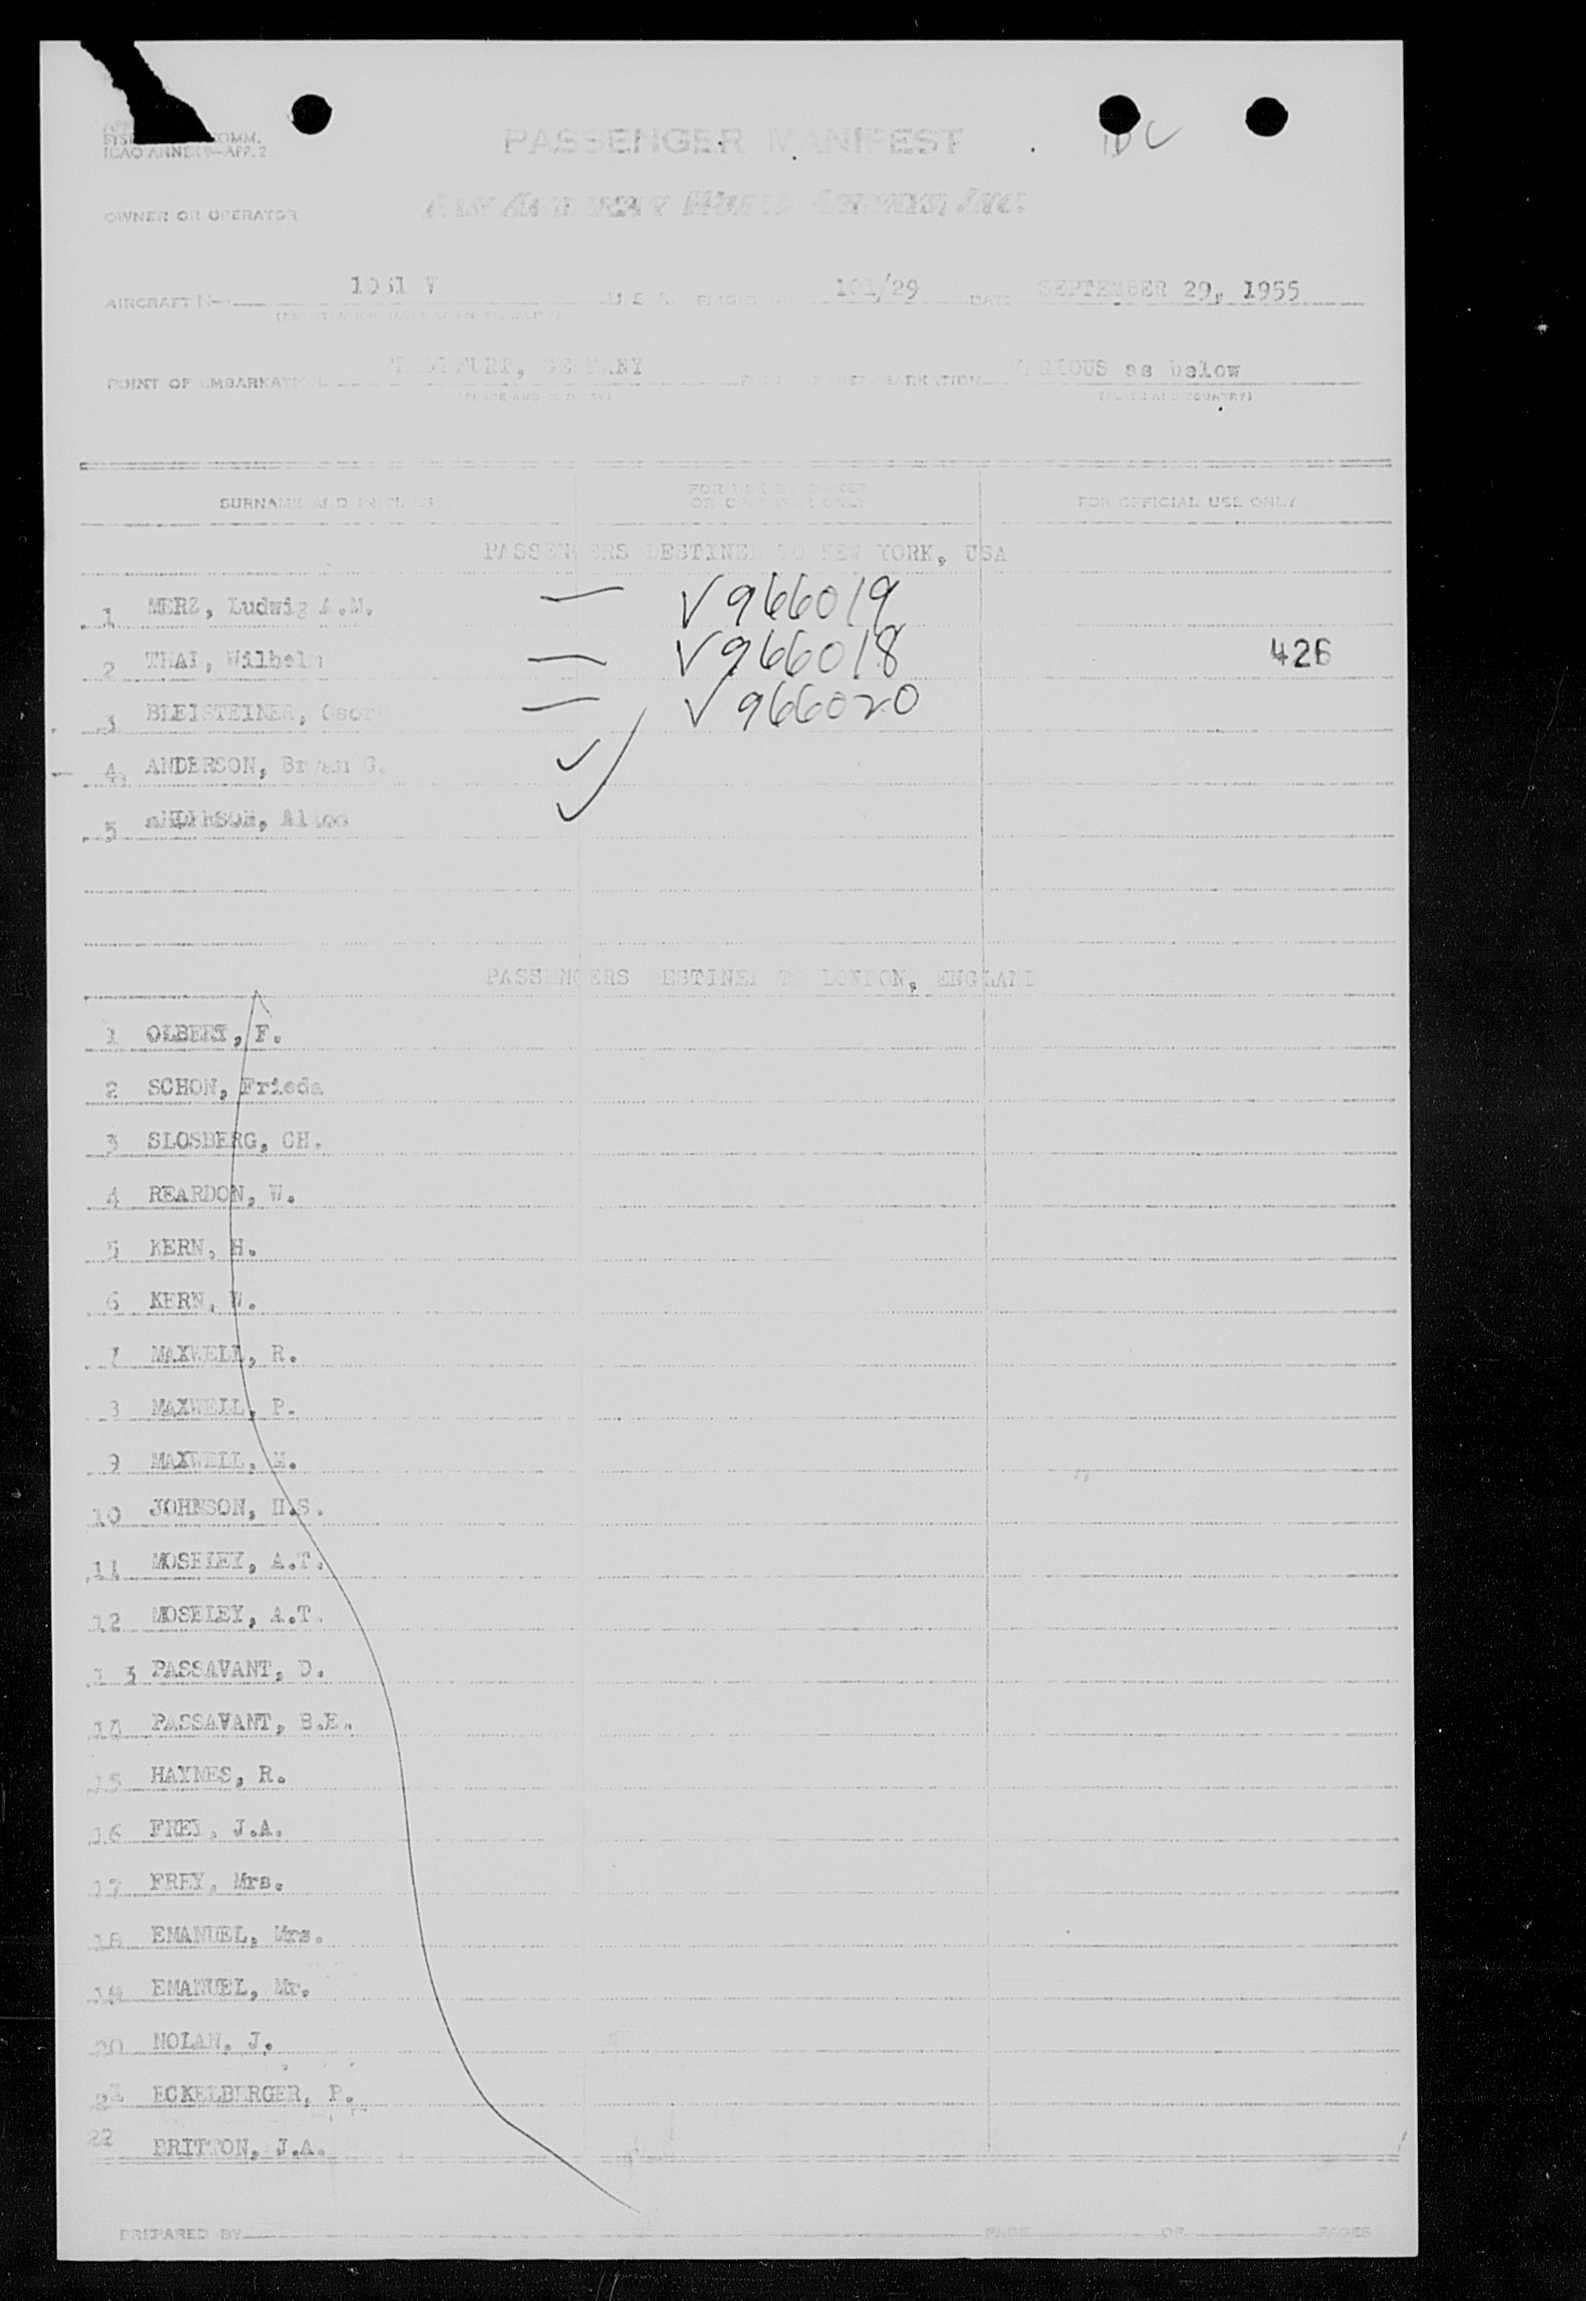 COMM.
ICAO ANNEX 9—APP. 2
PASSENGER MANIFEST
OWNER OR OPERATOR
AIRCRAFT N 1031 V U.S.A. FLIGHT 101/29 DATE SEPTEMBER 29, 1955
POINT OF EMBARKATION FRANKFURT, GERMANY DISEMBARKATION VARIOUS as below
(PLACE AND COUNTRY) (PLACE AND COUNTRY)
SURNAME AND INITIALS FOR USE BY OWNER OR OPERATOR ONLY FOR OFFICIAL USE ONLY
PASSENGERS DESTINED TO NEW YORK, USA
1 MERZ, Ludwig A.M. — √ 966019
2 THAL, Wilhelm — √ 966018 426
3 BLEISTEINER, Georg — √ 966020
4. ANDERSON, Bryan G. ✓
5 ANDERSON, ✓
PASSENGERS DESTINED TO LONDON, ENGLAND
1 OLBERT, F.
2 SCHON, Frieda
3 SLOSBERG, CH.
4 REARDON, W.
5 KERN, H.
6 KERN, W.
7 MAXWELL, R.
8 MAXWELL, P.
9 MAXWELL, M.
10 JOHNSON, H.S.
11 MOSELEY, A.T.
12 MOSELEY, A.T.
1 3 PASSAVANT, D.
14 PASSAVANT, B.E.
15 HAYNES, R.
16 FREY, J.A.
17 FREY, Mrs.
18 EMANUEL, Mrs.
19 EMANUEL, Mr.
20 NOLAN, J.
21 ECKELBERGER, P.
22 BRITTON, J.A.
PREPARED BY PAGE OF PAGES